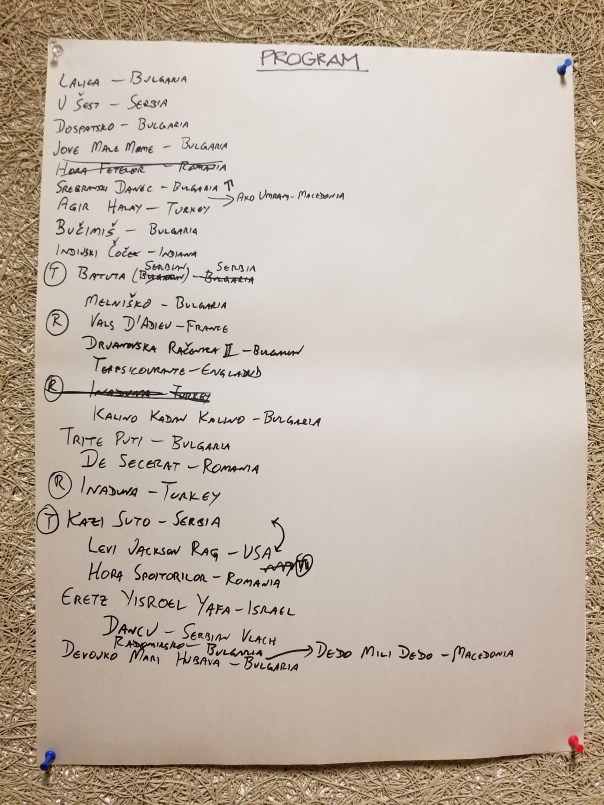 PROGRAM
LALICA – BULGARIA
U ŠEST – SERBIA
DOSPATSKO – BULGARIA
JOVE MALE MOME – BULGARIA
HORA FETELOR – ROMANIA
SREBRANSKI DANEC – BULGARIA
AGIR HALAY – TURKEY → AKO UMRAM – MACEDONIA
BUČIMIŠ – BULGARIA
INDIJSKI ČOČEK – INDIANA
(T) BATUTA (BULGARIAN) – BULGARIA SERBIAN SERBIA
MELNIŠKO – BULGARIA
(R) VALS D'ADIEU – FRANCE
DRJANOVSKA RAČENICA II – BULGARIA
TERPSICOURANTE – ENGLAND
(R) INADUNA – TURKEY
KALINO KADAN KALINO – BULGARIA
TRITE PUTI – BULGARIA
DE SECERAT – ROMANIA
(R) INADUNA – TURKEY
(T) KAZI SUTO – SERBIA
LEVI JACKSON RAG – USA
HORA SPOITORILOR – ROMANIA
ERETZ YISROEL YAFA – ISRAEL
DANCU – SERBIAN VLACH
RADOMIRSKO – BULGARIA
DEVOJKO MARI HUBAVA – BULGARIA → DEDO MILI DEDO – MACEDONIA